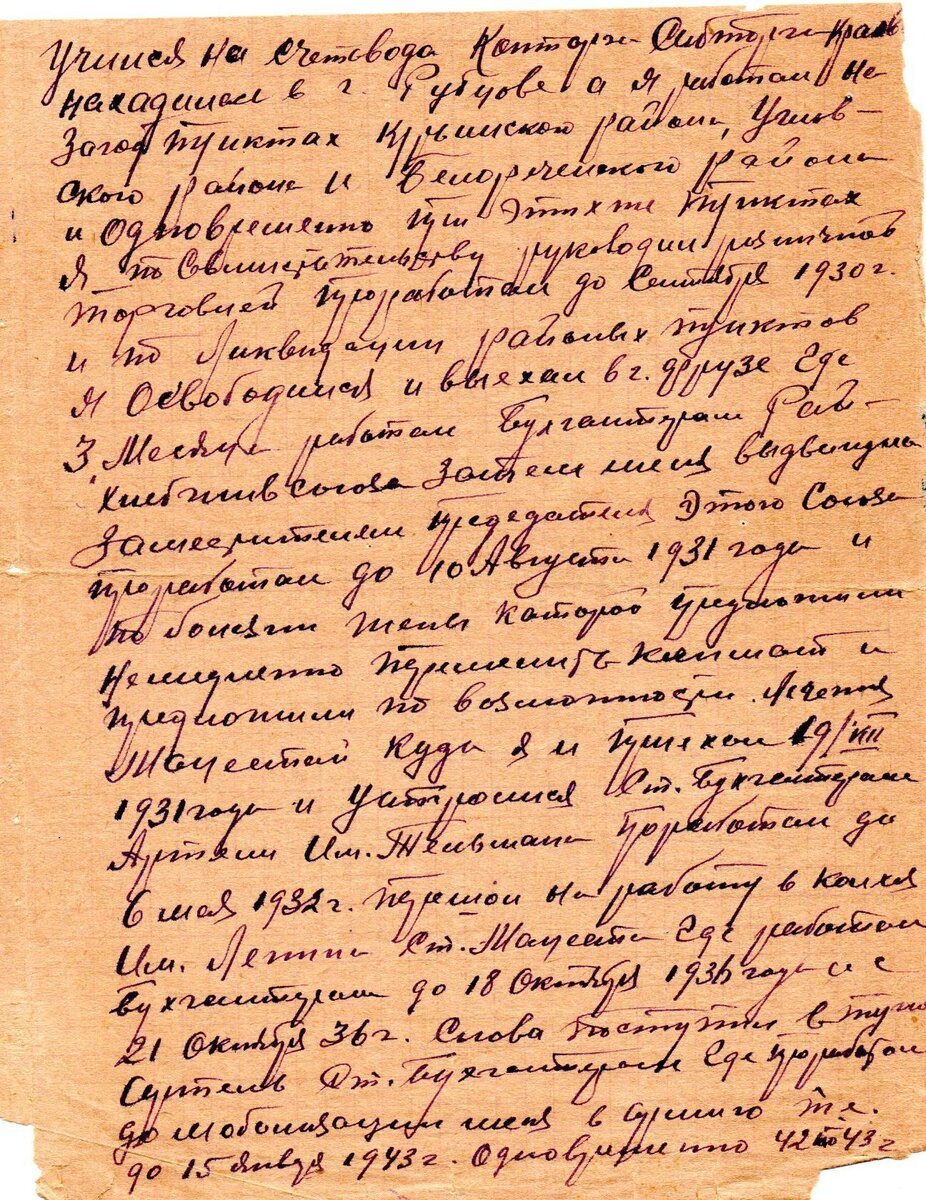 Учился на счетвода Контора Сибторга Края
находилась в г. Рубцове а я работал на
Загот пунктах Крымского района, Углов-
ского района и Белореченского района
и одновременно при этих же пунктах
я по совместительству руководил розничной
торговлей проработал до Сентября 1930 г.
и по Ликвидации районых пунктов
я Освободился и выехал в г. Фрузе Где
3 Месяца работал Бухгалтером Рай-
хлебживсоюза Затем меня выдвинули
Заместителем председателя Этого Союза
проработал до 10 Августа 1931 года и
по болезни жены которой предложили
немедленно переменить климат и
предложили по возможности Лечения
Мацестой куда я и приехал 19/VIII
1931 года и устроился Ст. Бухгалтером
Артели Им. Тельмана проработал до
6 мая 1932 г. перешол на работу в колхоз
Им. Ленина Ст. Мацеста Где работал
Бухгалтером до 18 Октября 1936 года и с
21 Октября 36 г. Снова поступил в туже
Артель Ст. Бухгалтером Где проработал
до мобилизации меня в Армию т.е.
до 15 января 1943 г. Одновременно 42 по 43 г